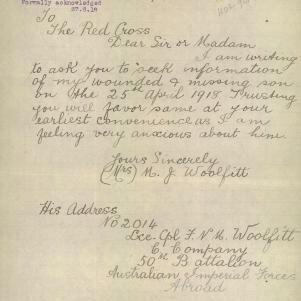 Formally acknowledged
27.6.18
To
The Red Cross
Dear Sir or Madam
I am writing
to ask you to seek information
of my wounded & missing son
on the 25st April 1918 Trusting
you will favor same at your
earliest convenience as I am
feeling very anxious about him.
Yours Sincerely
(Mrs) M. J Woolfitt
His Address
No 2014
Lce-Cpl F. N. M. Woolfitt
C Company
50st Battalon
Australian Imperial Forces
Abroad